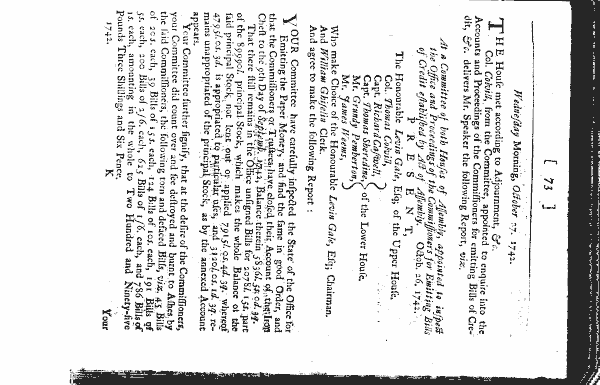 [ 73 ]
Wednesday Morning, October 27. 1742.
THE House met according to Adjournment, &c.
Col. Colvill, from the Committee, appointed to enquire into the
Accounts and Proceedings of the Commissioners for emitting Bills of Cre-
dit, &c. delivers Mr. Speaker the following Report, viz.
At a Committee of both Houses of Assembly, appointed to inspect
the Office and Proceedings of the Commissioners for Emitting Bills
of Credit established by Act of Assembly, Octob. 26, 1742.
PRESENT,
The Honourable Levin Gale, Esq; of the Upper House.
Col. Thomas Colvill,
Capt. Richard
Capt. Thomas Sheredine,
Mr. Grundy Pemberton,
Mr. James Weems,
of the Lower House.
Who make Choice of the Honourable Levin Gale, Esq; Chairman.
And William Ghiselin Clerk.
And agree to make the following Report:
YOUR Committee have carefully inspected the State of the Office for
Emitting the Paper Money, and find the same in good Order, and
that the Commissioners or Trustees have closed their Account of the Iron
Chest to the 9th Day of 1742, Balance therein
That there still remains in the Office unsigned Bills for part
of the principal Stock, which makes the whole Balance of the
said principal Stock, not lent out or applied whereof
is appropriated to particular uses, and re-
mains unappropriated of the principal Stock, as by the annexed Account
appears.
Your Committee further signify, that at the desire of the Commissioners,
your Committee did count over and see destroyed and burnt to Ashes by
the said Commissioners, the following torn and defaced Bills, viz. 45 Bills
of 20s. each, 39 Bills of 15s. each, 124 Bills of 10s. each, 191 Bills of
5s. each, 200 Bills of 2/6. each, 625 Bills of 1/6. each, and 786 Bills of
1s. each, amounting in the whole to Two Hundred and Ninety-five
Pounds Three Shillings and Six Pence.
1742. K Your